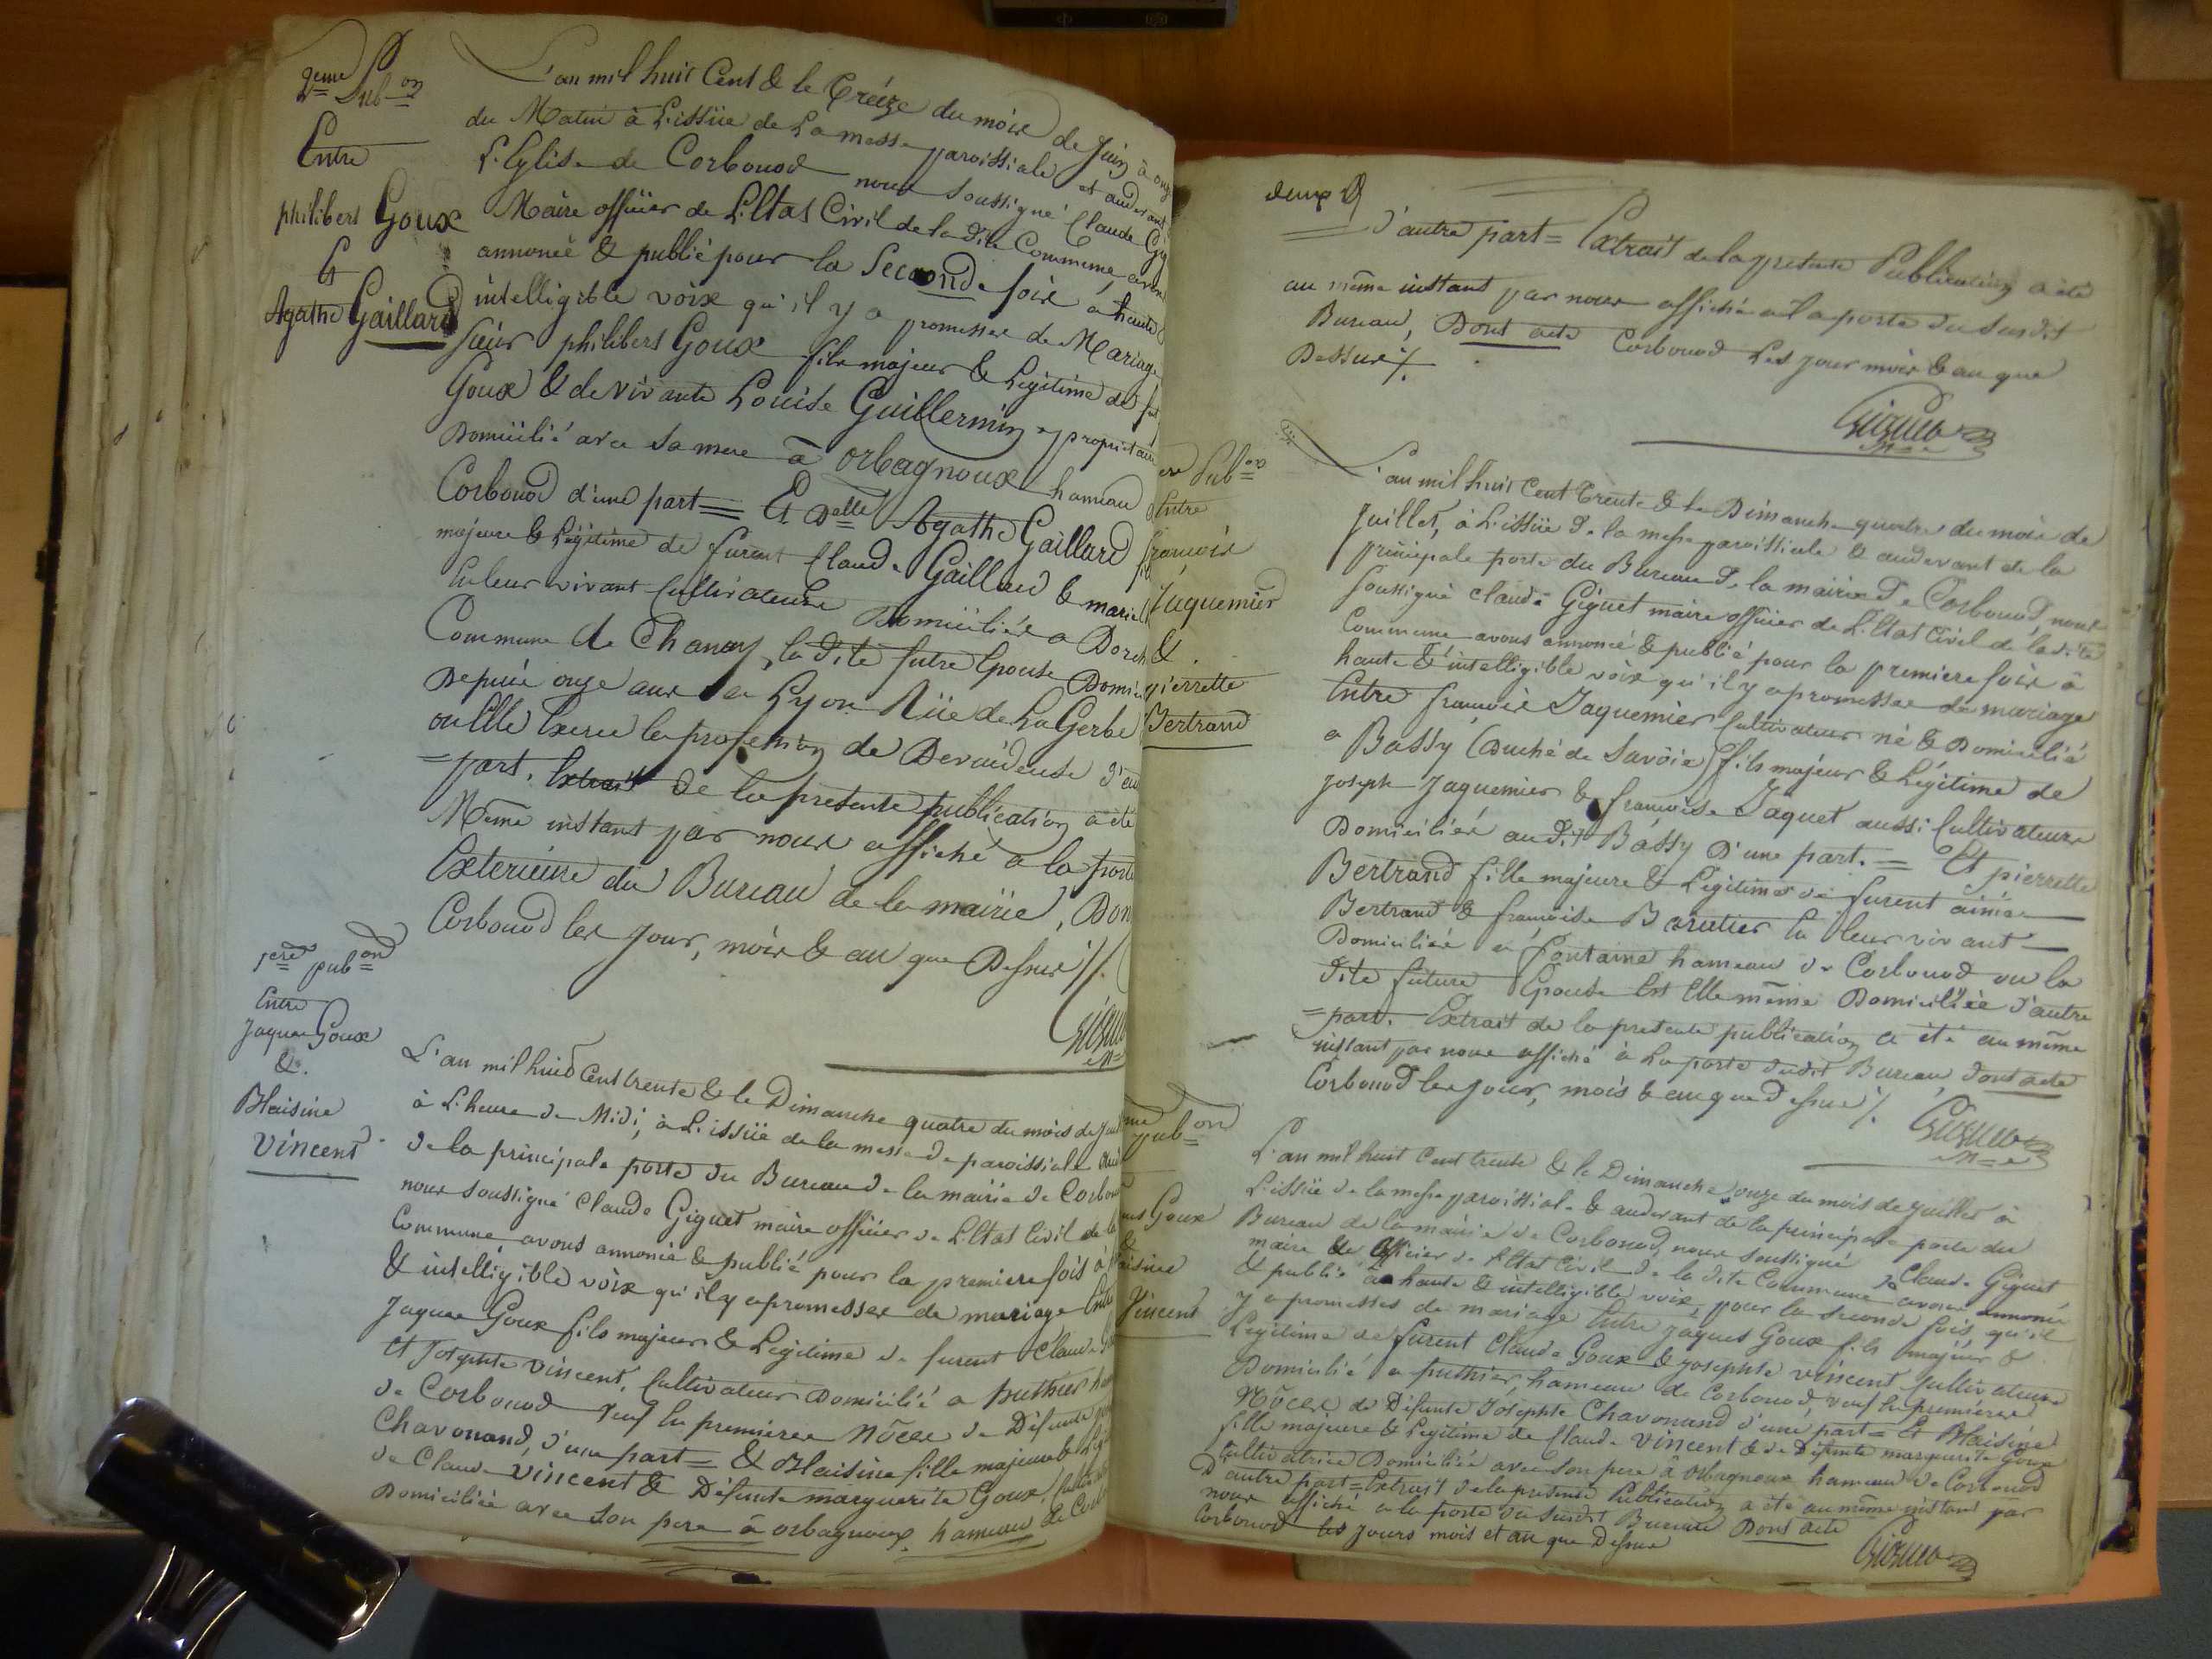 2eme Pub on
Entre
philibert Goux
Et
Agathe Gaillard
L'an mil huit Cent & le Treize du mois de Juin à onze
du Matin à L'issüe de La messe paroissiale et audevant
L'Eglise de Corbonod nous Soussigné Claude Gig
Maire officier de L'Etat Civil de la dite Commune, avons
annoncé & publié pour la Seconde fois à haute
intelligible voix qu'il y a promesses de Mariage
Sieur philibert Goux fils majeur & Legitime de fut
Goux & de vivante Louise Guillermin propriétaire
Domicilié avec sa mere à Orbagnoux hameau
Corbonod d'une part = Et Delle Agathe Gaillard fi
majeure & Légitime de furent Claude Gaillard & marie
La leur vivant Cultivateurs Domiciliés a Dorch
Commune de Chanay, la dite future Epouse Domi
Depuis onze ans a Lyon Rüe de La Gerbe
ou Elle Exerce la profession de Devideuse d'au
=part. Extrait de la presente publication a été
Même instant par nous affiché a la porte
Exterieure du Bureau de la mairie, Don
Corbonod les jour, mois & an que Dessus //.
1ere pub on
Entre
Jaques Goux
&.
Blaisine
Vincent
L'an mil huit Cent trente & le Dimanche quatre du mois de Juil
à L'heure de Midi, à L'issüe de la messe paroissiale
de la principale porte du Bureau de la mairie de Corbon
nous soussigné Claude Giguet maire officier de L'Etat Civil de la
Commune avons annoncé & publié pour la premiere fois à
& intelligible voix qu'il y a promesses de mariage Entre
Jaques Goux fils majeur & Légitime de furent Claude G
Et Josephte Vincent, Cultivateur Domicilié a puthier h
de Corbonod Veuf En premieres Nôces de Défunte
Chavonand, d'une part = & Blaisine fille majeure & Legi
de Claude Vincent & Défunte marguerite Goux,
Domiciliée avec Son pere à orbagnoux, hameau de Corb
re Pub on
Entre
françois
Jaquemier
&.
pierrette
Bertrand
me
pub on
ues Goux
&
aisine
Vincent
D'autre part = Extrait de la presente Publication a été
au même instant par nous affiché a la porte du Susdit
Bureau, Dont acte Corbonod Les jour mois & an que
Dessus /.
L'an mil huit Cent trente & le Dimanche quatre du mois de
Juillet, à L'issüe de la messe paroissiale & audevant de la
principale porte du Bureau de la mairie de Corbonod, nous
soussigné claude Giguet maire officier de L'Etat Civil de ladite
Commune avons annoncé & publié pour la premiere fois à
haute & intelligible voix qu'il y a promesses de mariage
Entre françois Jaquemier Cultivateur né & Domicilié
a Bassy (Duché de Savoie) fils majeur & Légitime de
Joseph Jaquemier & françoise Jaquet aussi Cultivateurs
Domiciliés audit Bassy D'une part. = Et pierrette
Bertrand fille majeure & Legitime de furent aimé
Bertrand & françoise La leur vivant
Domiciliés a fontaine hameau de Corbonod ou la
dite future Epouse Est Elle même Domiciliée d'autre
=part. Extrait de la presente publication a été au même
instant par nous affiché à La porte dudit Bureau, dont acte
Corbonod les jour, mois & an que dessus /.
L'an mil huit Cent trente & le Dimanche onze du mois de Juillet à
L'issüe de la messe paroissiale & audevant de la principale porte du
Bureau de la mairie de Corbonod, nous soussigné Claude Giguet
maire & officier de L'Etat Civil de la dite Commune avons annoncé
& publié à haute & intelligible voix, pour la seconde fois, qu'il
y a promesses de mariage Entre Jaques Goux fils majeur &
Legitime de furent Claude Goux & Josephte Vincent Cultivateur
Domicilié a puthier, hameau de Corbonod, veuf En premieres
Nôces de Défunte Josephte Chavonand d'une part = Et Blaisine
fille majeure & Legitime de Claude Vincent & de Défunte marguerite Goux
Cultivatrice Domiciliée avec son pere à Orbagnoux hameau de Corbonod
D'autre part = Extrait de la presente Publication a été au même instant par
nous affiché a la porte du susdit Bureau Dont acte
Corbonod les jours mois et an que Dessus